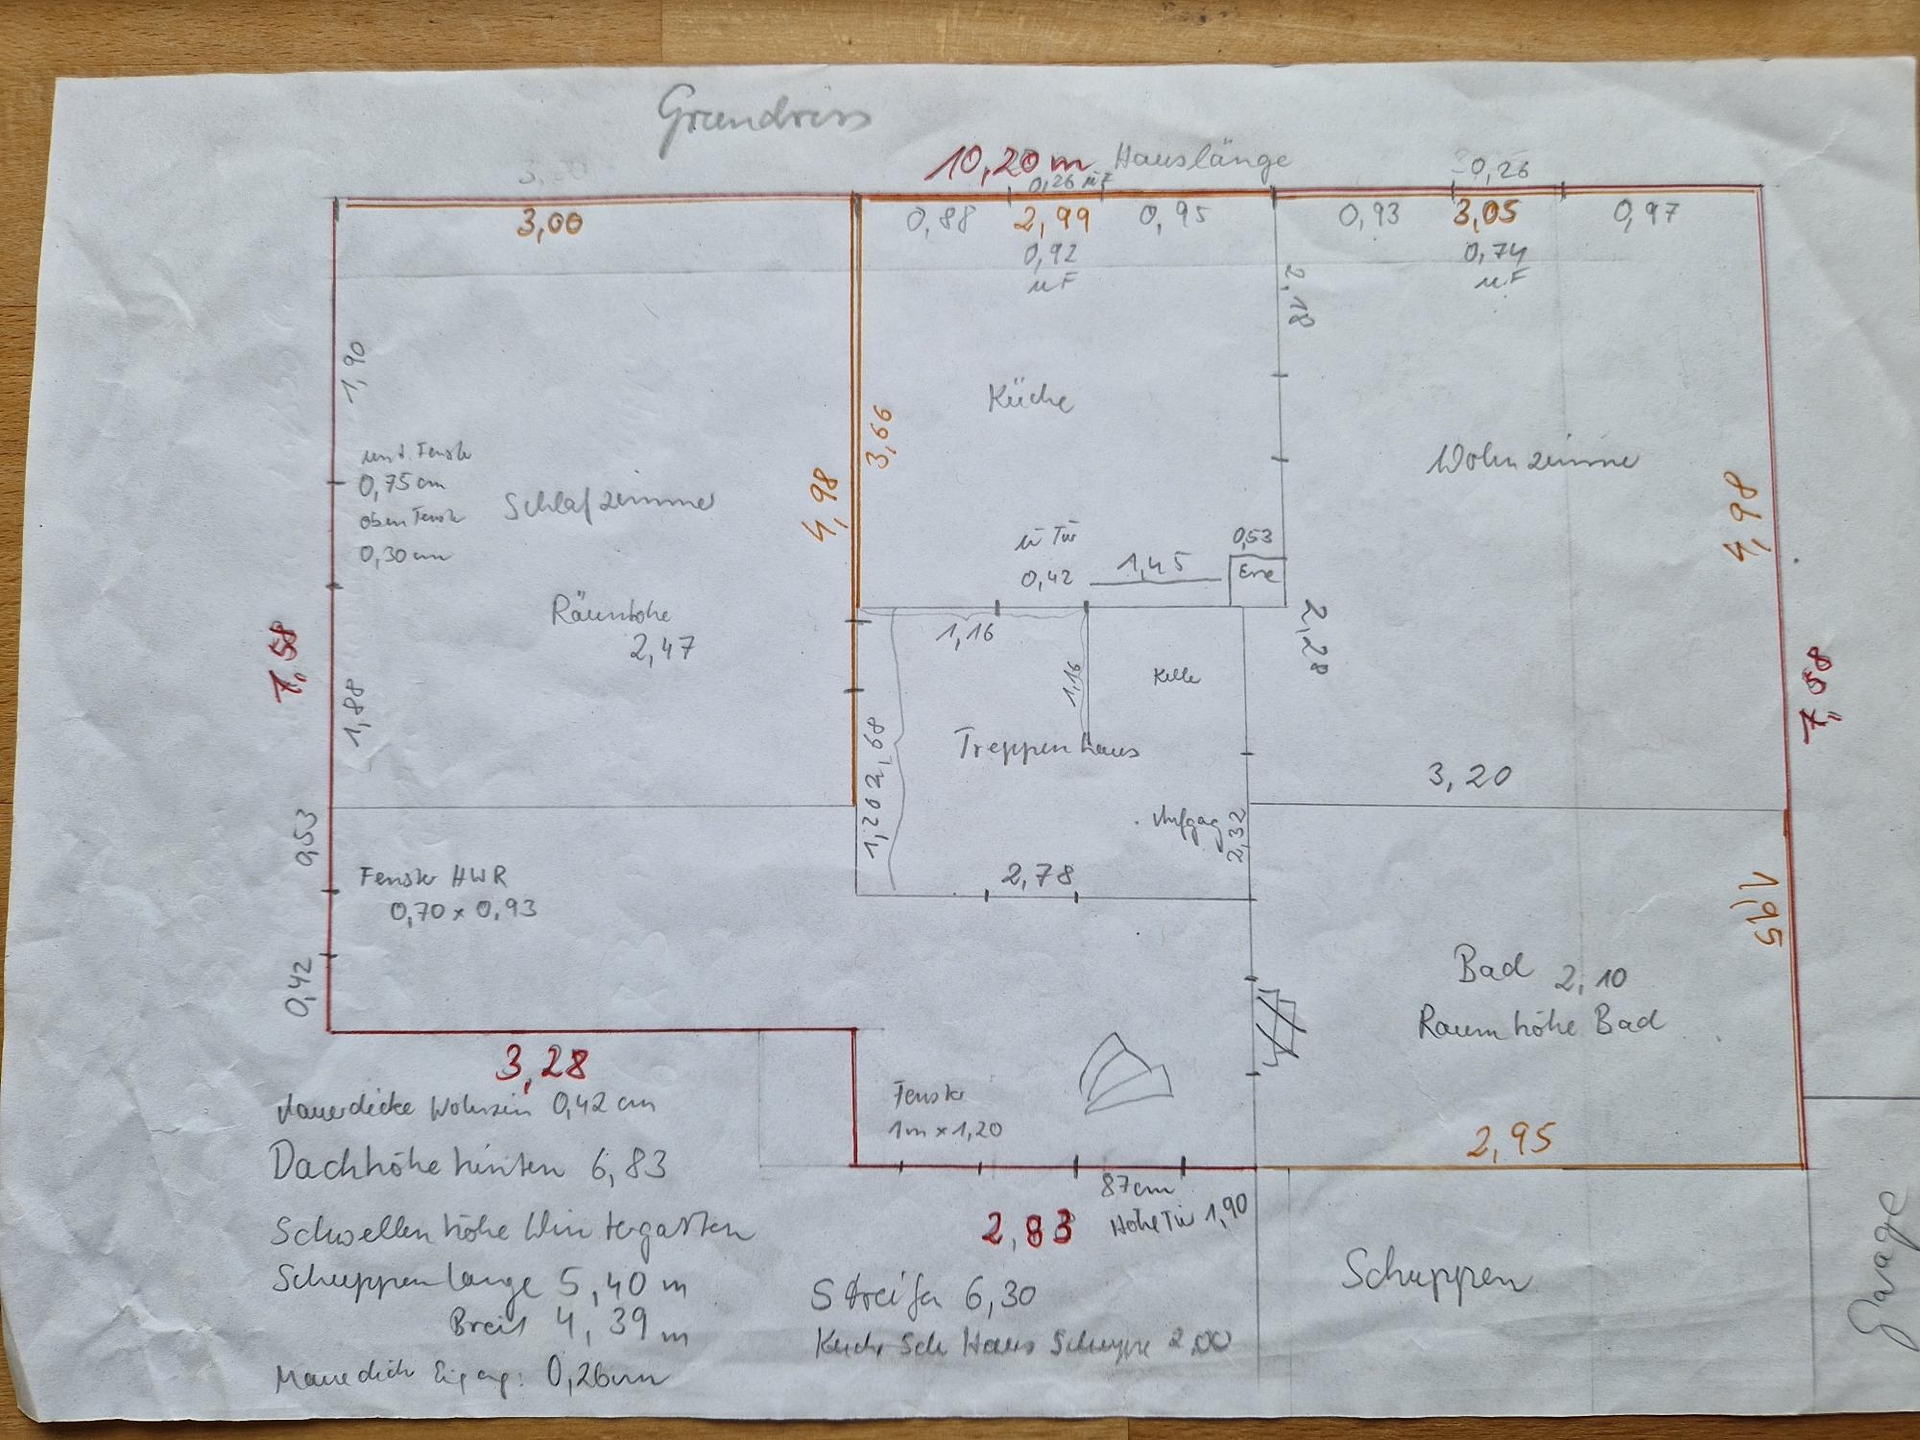 Grundriss
10,20 m Hauslänge
0,26
0,26
3,00
0,88 2,99 0,95
0,93 3,05 0,97
0,92
0,74
2,18
1,90
Küche
3,66
Wohnzimme
0,75 cm
Schlafzimmer
0,30 cm
4,98
4,98
ü Tür
0,42
1,45
0,53
1,16
2,28
2,47
7,58
7,58
1,88
1,16
Kelle
Treppenhaus
1,20 2,68
3,20
2,32
0,53
Fenster HWR
0,70 x 0,93
2,78
1,95
0,42
Bad 2,10
Raumhöhe Bad
3,28
Fenster
1m x 1,20
2,95
Mauerdicke Wohnzim 0,42 cm
Dachhöhe hinten 6,83
87cm
Höhe Tür 1,90
2,83
Schwellenhöhe Wintergarten
Schuppenlänge 5,40 m
Breit 4,39 m
Streifen 6,30
Schuppen
Garage
Haus 2,00
0,26cm